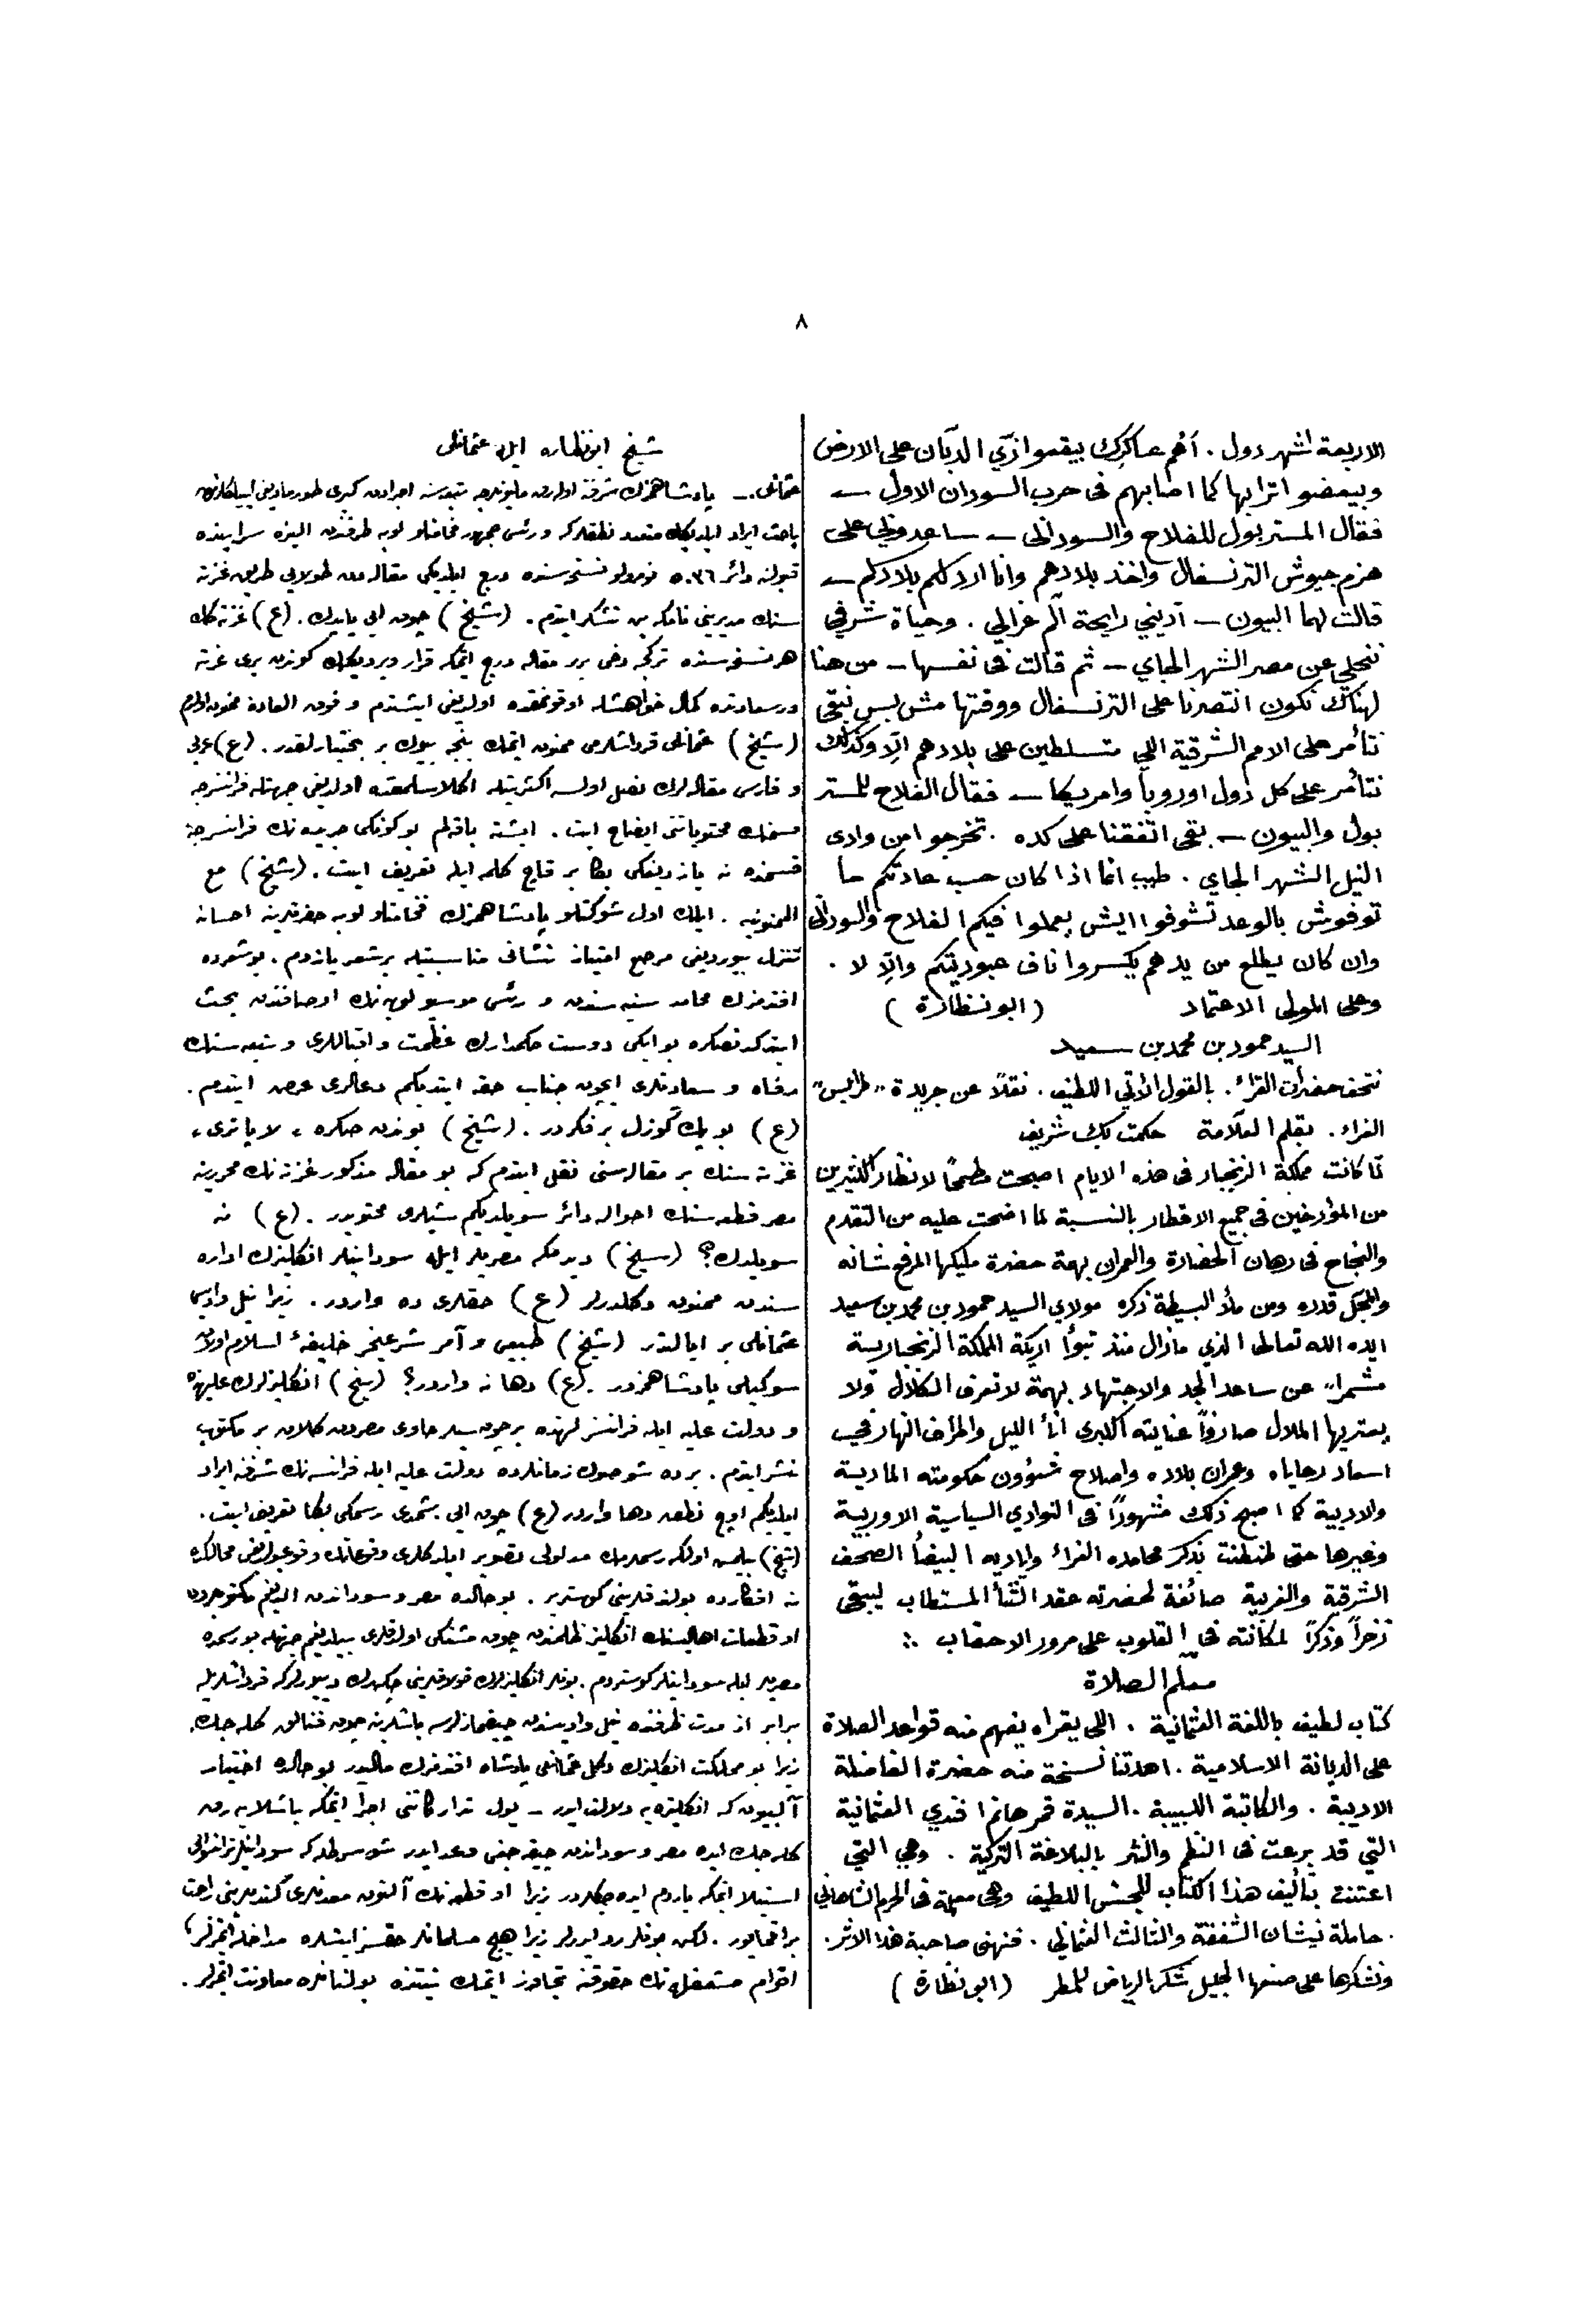 ٨
الاربعة اشهر دول . أهم عساكرك بيقعوا زي الدبان على الارض
وبيعضوا ترابها كما اصابهم فى حرب السودان الاول —
فقال المستر بول للفلاح والسودانى — ساعدونى على
هزم جيوش الترنسفال واخذ بلادهم وانا ارد لكم بلادكم —
قالت لهما البيون — آدينى رايحة آلم غزالي . وحياة شرفي
ننجلي عن مصر الشهر الجاي — ثم قالت فى نفسها — من هنا
لهناك نكون انتصرنا على الترنسفال ووقتها مش بس نبقى
نتأمر على الامم الشرقية اللي متسلطين على بلادهم الا وكذلك
نتأمر على كل دول اوروبا وامريكا — فقال الفلاح للمستر
بول والبيون — بقى اتفقنا على كده . تخرجوا من وادى
النيل الشهر الجاي . طيب انما اذا كان حسب عادتكم ما
توفوش بالوعد تشوفوا ايش يعملوا فيكم الفلاح والسودانى
وان كان يطلع من يدهم يكسروا ناف عبوديتكم والا لا .
وعلى المولى الاعتماد (ابو نظارة)
السيد حمود بن محمد بن سعيد
نتحف حضرات القراء . بالقول الآتي اللطيف . نقلاً عن جريدة "طرابلس"
الغراء . بقلم العلّامة حكمت بك شريف
لما كانت مملكة الزنجبار فى هذه الايام اصبحت مطمحًا لانظار الكثيرين
من المؤرخين فى جميع الاقطار بالنسبة لما اضحت عليه من التقدم
والنجاح فى رهان الحضارة والعمران بهمة حضرة مليكها المرفع شانه
والمبجل قدره ومن ملأ البسيطة ذكره مولاي السيد حمود بن محمد بن سعيد
ايده الله تعالى الذي مازال منذ تبوأ اريكة المملكة الزنجبارية
مشمراً عن ساعد الجد والاجتهاد بهمة لا تعرف الكلال ولا
يعتريها الملال صارفاً عنايته الكبرى آنأ الليل واطراف النهار فى
اسعاد رعاياه وعمران بلاده واصلاح شؤون حكومته المادية
والادبية كما اصبح ذلك مشهوراً فى النوادي السياسية الاوربية
وغيرها حتى طنطنت بذكر محامده الغراء واياديه البيضأ الصحف
الشرقية والغربية صائغة لحضرته عقد الثنأ المستطاب ليبقى
ذخراً وذكراً لمكانته فى القلوب على مرور الاحقاب .
معلم الصلاة
كتاب لطيف باللغة العثمانية . اللى يقراه يفهم منه قواعد الصلاة
على الديانة الاسلامية . اهدتنا نسخة منه حضرة الفاضلة
الاديبة . والكاتبة اللبيبة . السيدة قمر هانم افندي العثمانية
التي قد برعت فى النظم والنثر بالبلاغة التركية . وهي التي
اعتنت بتأليف هذا الكتاب للجنس اللطيف وهى معلمة فى الحرم الشاهاني
. حاملة نيشان الشفقة والثالث العثمانى . فنهنى صاحبة هذا الاثر .
ونشكرها على صنعها الجليل شكر الرياض للمطر (ابو نظارة)
شيخ ابونظاره ايله عثمانلى
عثمانلى . — پادشاهمزك شرفنه اولارق مليونلرجه تبعه سنه اجرا دن كيرى طورماديغى
باحث ايراد ايلديكك متعدد نطقلر كه ورئيس جمهور فخامتلو لوبه طرفندن اليزه سراينده
قبولنه دائر نومرولو نسخه سنده درج ايلديكى مقاله دن طولايى طريق غزته
سنك مديرينى تشكر ايتدم . (شيخ) چوق ايى ياپدك . (ع) غزته كك
هر نسخه سنده تركجه دخى برر مقاله درج ايتمكه قرار ويرديكك كوندن برى غزته
درسعادتده كمال خواهشله اوقونمقده اولديغنى ايشتدم و فوق العاده ممنون اولدم
(شيخ) عثمانلى قرداشلرمى ممنون ايتمك بنجه بيوك بر بختيارلقدر . (ع) عربى
و فارسى مقاله لرك نصل اولسه اكثريتله اكلاشلمقده اولديغى جهتله فرانسزجه
قسمنك محتوياتنى ايضاح ايت . ايشته باقه لم بو كونكى جريده نك فرانسزجه
قسمنده نه يازديغكى بكا بر قاچ كلمه ايله تعريف ايت . (شيخ) مع
الممنونيه . ايلك اول شوكتلو پادشاهمزك فخامتلو لوبه حضرتلرينه احسانه
تنزل بيورديغى مرصع امتياز نشانى مناسبتيله بر شعر يازدم . بو شعرده
افندمزك محامد سنيه سندن و رئيس موسيو لوبه نك اوصافندن بحث
ايتدكدنصكره بو ايكى دوست حكمدارك عظمت و اقباللرى و تبعه سنك
رفاه و سعادتلرى ايچون جناب حقه ايتديكم دعالرى عرض ايتدم .
(ع) بو پك كوزل بر فكردر . (شيخ) بوندن صكره ، لا پاترى ،
غزته سنك بر مقاله سنى نقل ايتدم كه بو مقاله مذكور غزته نك محررينه
مصر قطعه سنك احوالنه دائر سويلديكم شيلرى محتويدر . (ع) نه
سويلدك؟ (شيخ) ديدمكه مصريلر ايله سودانيلر انكليزك اداره
سندن ممنون دكلدرلر (ع) حقلرى ده واردر . زيرا نيل واديسى
عثمانلى بر ايالتدر (شيخ) طبيعى و آمر شرعيمز خليفهٔ اسلام اولان
سوكيلى پادشاهمزدر . (ع) دها نه واردر؟ (شيخ) انكليزلرك عليهنه
و دولت عليه ايله فرانسز لهنده بر چوق سيلر حاوى مصردن كلان بر مكتوب
نشر ايتدم . برده شو صوك زمانلرده دولت عليه ايله فرانسه نك شرفنه ايراد
ايلديكم اوچ نطق دها واردر (ع) چوق ايى . شمدى رسمكى بكا تعريف ايت .
(شيخ) بيلمش اول كه رسملرمك مدلولى تصوير ايلدكلرى وقوعاتك وقوعبولديغى محاللرك
نه افكارده بولندقلرينى كوستريور . بو حالده مصر و سوداندن الديغم مكتوبلردن
او قطعات اهاليسنك انكليز ظلمندن چوق مشتكى اولدقلرى بيلديغم جهتله بو رسمده
مصريلر ايله سودانيلر كوستردم . بونلر انكليزلرك قولاقلرينى چكه رك ديييورلر كه قرداشلريله
برابر از مدت ظرفنده نيل واديسندن چيقمازلرسه باشلرينه چوق فنالق كله جك .
زيرا بو مملكت انكليزك دكل عثمانلى پادشاه افندمزك ماليدر بو حالده اختيار
آلبيون كه انكلتره يه دلالت ايدر — بول تداركاتنى اجرا ايتمكه باشلايه رق
كله جك ايده مصر و سوداندن چيقه جغنى وعد ايدر شو شرطله كه سودانيلر ترانسوالى
استيلا ايتمكه ياردم ايده جكلردر زيرا او قطعه نك آلتون معدنلرى كندولرينى راحت
براقمايور . لكن بونلر رد ايدرلر زيرا هيچ مسلمانلر حقسز ايشلره مداخله ايتمزلر ،
اقوام مستقله نك حقوقنه تجاوز ايتمك نيتنده بولنانلره معاونت ايتمزلر .